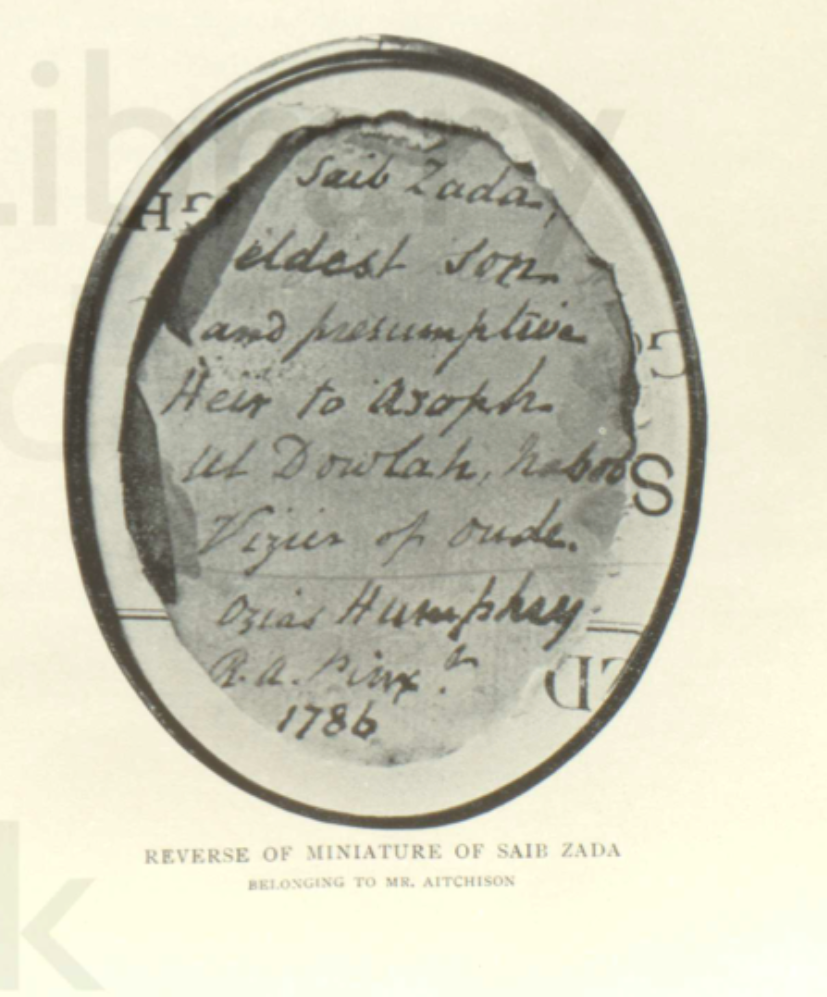 Saib Zada,
eldest son
and presumptive
Heir to Asoph
ul Dowlah, Nabob
Vizier of Oude.
Ozias Humphry
R.A. Pinx.t
1786
REVERSE OF MINIATURE OF SAIB ZADA
BELONGING TO MR. AITCHISON